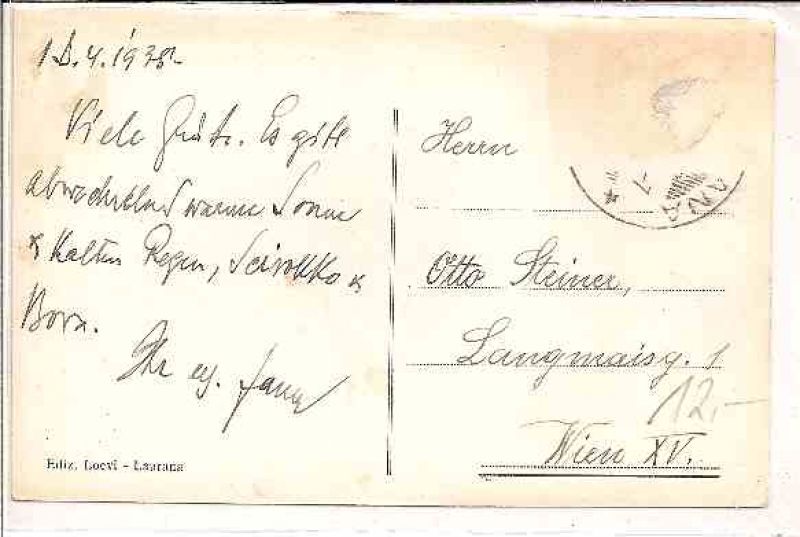 18.4.1938
Viele Grüße. Es gibt
abwechselnd warme Sonne
& kalten Regen, Scirokko &
Bora.
Ihr
Ediz. Loevi - Laurana
Herrn
Otto Steiner,
Langmaisg. 1
12.-
Wien XV.